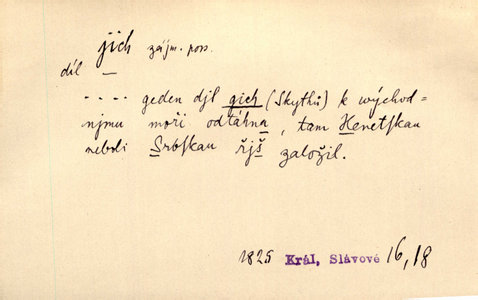 jich zájm. pos.
díl —
.... geden djl gich (Skythů) k wýchod=
njmu moři odtáhna, tam Henetskau
neboli Srbskau řjš založil.
1825 Král, Slávové 16,18